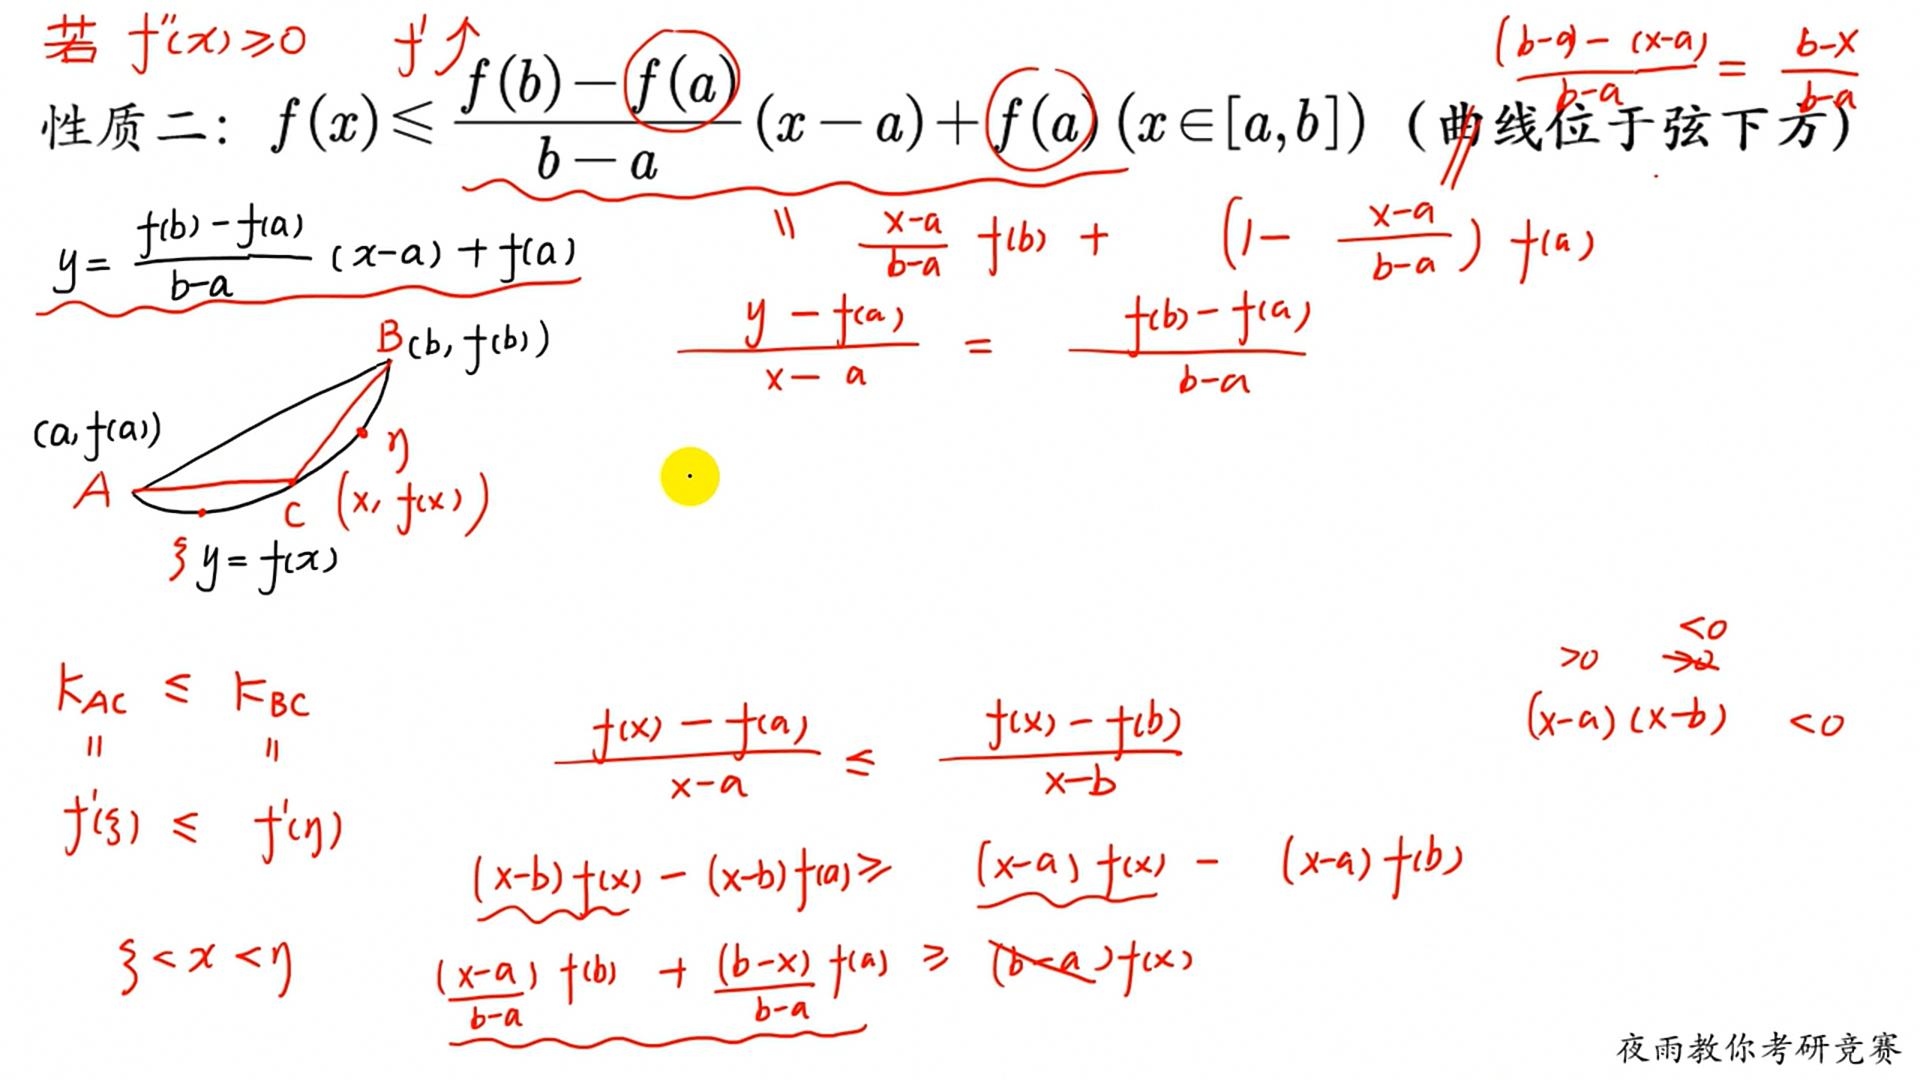 若 f''(x)≥0 f'↑
((b-a)-(x-a))/(b-a) = (b-x)/(b-a)
性质二: f(x)≤(f(b)-f(a))/(b-a)(x-a)+f(a)(x∈[a,b])(曲线位于弦下方)
y=(f(b)-f(a))/(b-a)(x-a)+f(a)
= (x-a)/(b-a) f(b) + (1-(x-a)/(b-a)) f(a)
(y-f(a))/(x-a) = (f(b)-f(a))/(b-a)
B(b, f(b))
(a, f(a))
A
η
C (x, f(x))
ξ y=f(x)
K_AC ≤ K_BC
= =
f'(ξ) ≤ f'(η)
ξ<x<η
(f(x)-f(a))/(x-a) ≤ (f(x)-f(b))/(x-b)
<0
>0 >0
(x-a)(x-b) <0
(x-b)f(x)-(x-b)f(a)≥(x-a)f(x)-(x-a)f(b)
(x-a)/(b-a) f(b)+(b-x)/(b-a) f(a) ≥ (b-a)f(x)
夜雨教你考研竞赛